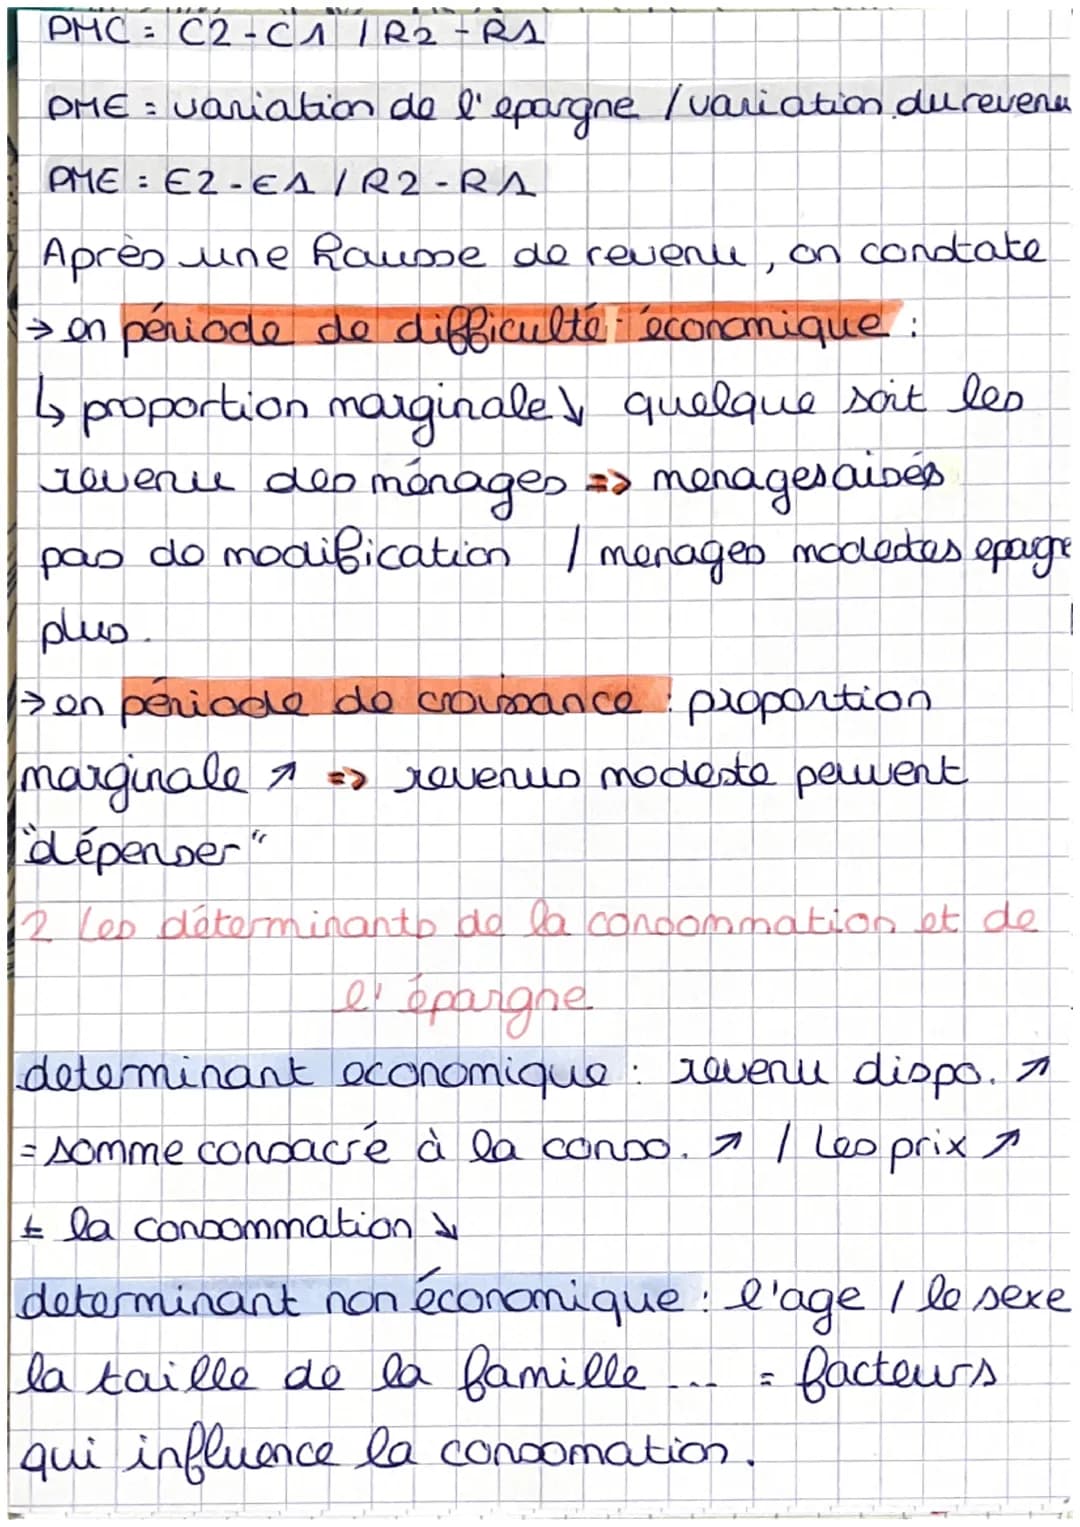 PMC = C2-C1 / R2-R1
PME = variation de l'epargne / variation du revenu
PME = E2-E1 / R2-R1
Après une hausse de revenu, on constate
→ en période de difficulté économique :
↳ proportion marginale ↓ quelque soit les
revenu des ménages => menages aisés
pas de modification / menages modestes epargne
plus.
→ en période de croissance : proportion
marginale ↗ => revenus modeste peuvent
"dépenser"
2 Les déterminants de la consommation et de
l'épargne
determinant economique : revenu dispo. ↗
= somme consacré à la conso. ↗ / Les prix ↗
= la consommation ↘
determinant non économique : l'age / le sexe
la taille de la famille ... = facteurs
qui influence la consomation.